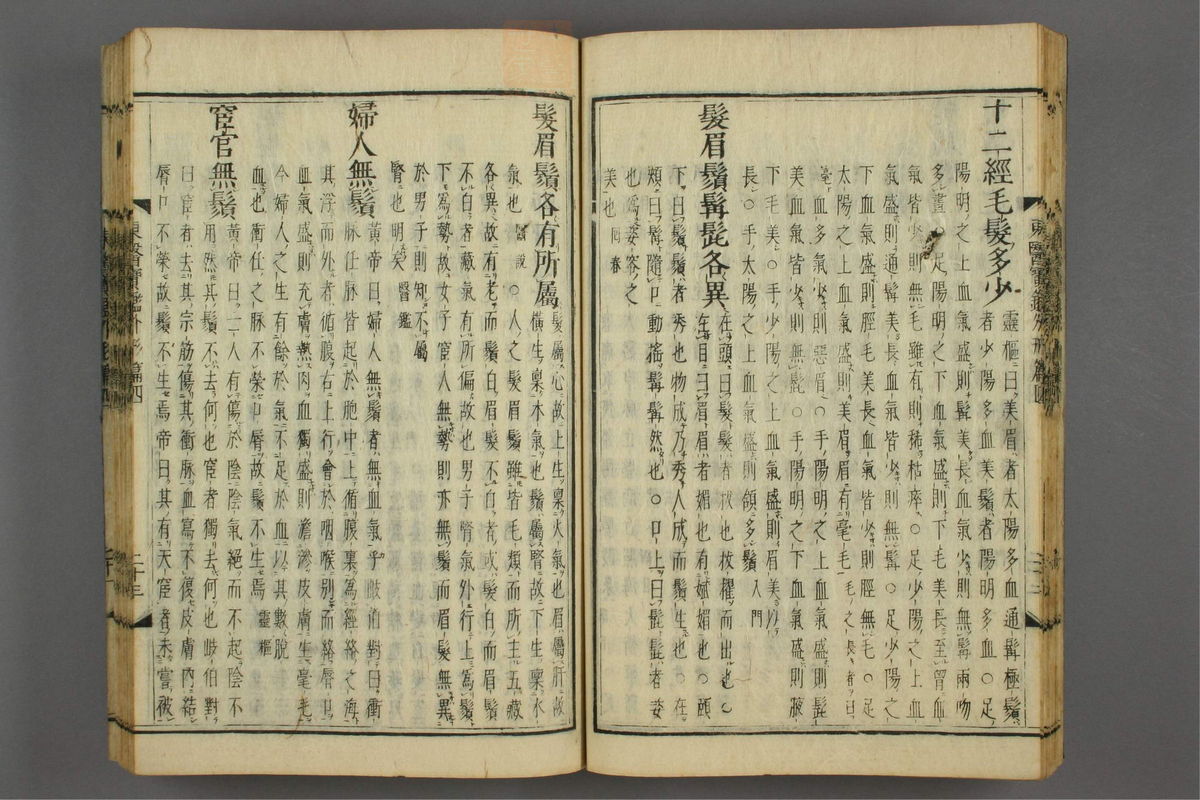 十二經毛髮多少 靈樞曰美眉者太陽多血通髯極鬚
者少陽多血美鬚者陽明多血○足
陽明之上血氣盛則髯美長血氣少則無髯兩吻
多畫○足陽明之下血氣盛則下毛美長至胷血
氣皆少則無毛雖有則稀枯瘁○足少陽之上血
氣盛則通髯美長血氣皆少則無髯○足少陽之
下血氣盛則脛毛美長血氣皆少則脛無毛○足
太陽之上血氣盛則美眉眉有毫毛毛之長者曰
毫血多氣少則惡眉○手陽明之上血氣盛則髭
美血氣皆少則無髭○手陽明之下血氣盛則腋
下毛美○手少陽之上血氣盛則眉美
長○手太陽之上血氣盛則多鬚入門
髮眉鬚髯髭各異 在頭曰髮髮者拔也拔擢而出也○
在目曰眉眉者媚也有嫵媚也○頤
下曰鬚鬚者秀也物成乃秀人成而鬚生也○在
頰曰髯隨口動搖髯髯然也○口上曰髭髭者姿
也爲姿容之
美也回春
髮眉鬚各有所屬 髮屬心故上生稟火氣也眉屬肝故
橫生稟木氣也鬚屬腎故下生稟水
氣也 ○人之髮眉鬚雖皆毛類而所主五藏
各異故有老而鬚白眉髮不白者或髮白而眉鬚
不白者藏氣有所偏故也男子腎氣外行上爲鬚
下爲勢故女子宦人無勢則亦無鬚而眉髮無異
於男子則知不屬
腎也明矣醫鑑
婦人無鬚 黃帝曰婦人無鬚者無血氣乎岐伯對曰衝
脉任脉皆起於胞中上循腹裏爲經絡之海
其浮而外者循腹右上行會於咽喉別而絡脣口
血氣盛則充膚熱肉血獨盛則滲皮膚生毫毛
今婦人之生有餘於氣不足於血以其數脫
血也衝任之脉不榮口脣故鬚不生焉靈樞
宦官無鬚 黃帝曰人有傷於陰陰氣絕而不起陰不
用然其鬚不去何也宦者獨去何也岐伯對
曰宦者去其宗筋傷其衝脉血寫不復皮膚內結
脣口不榮故鬚不生焉帝曰其有天宦者未嘗被